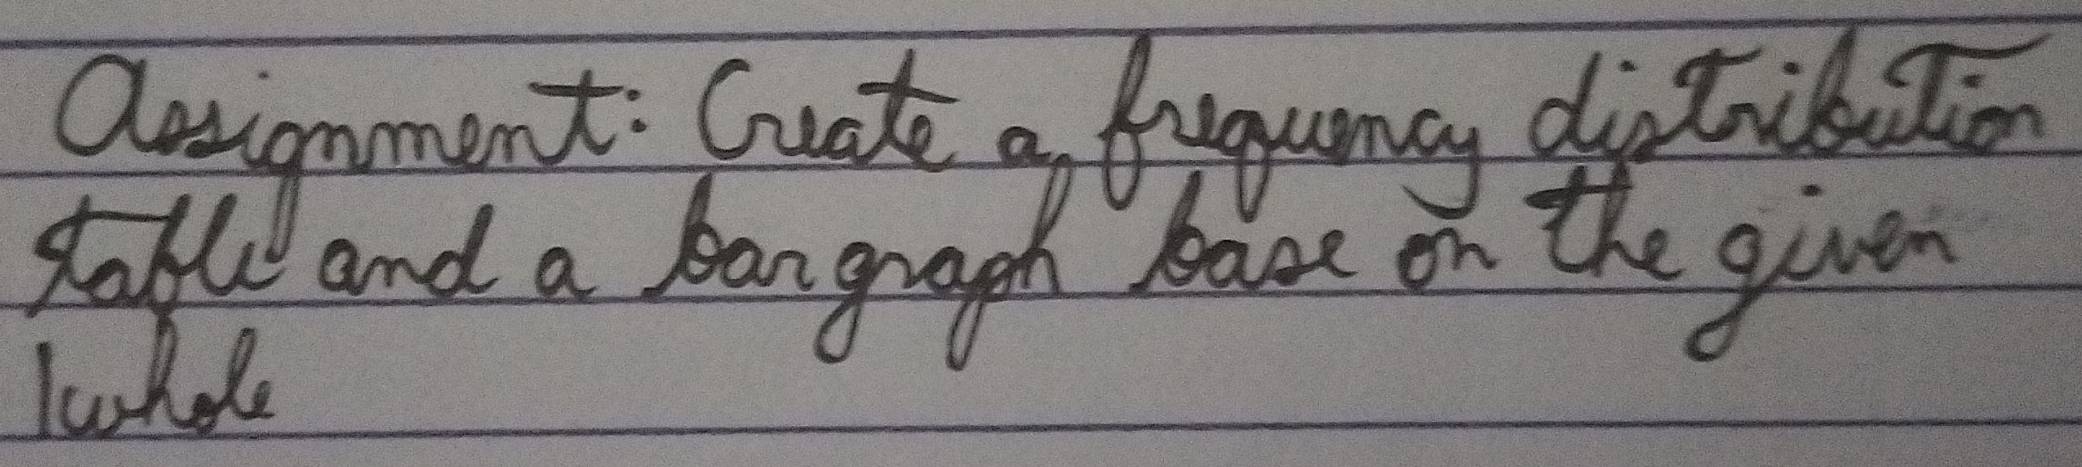 Assignment: Create a frequency distribution
table and a bar graph base on the given
1 whole